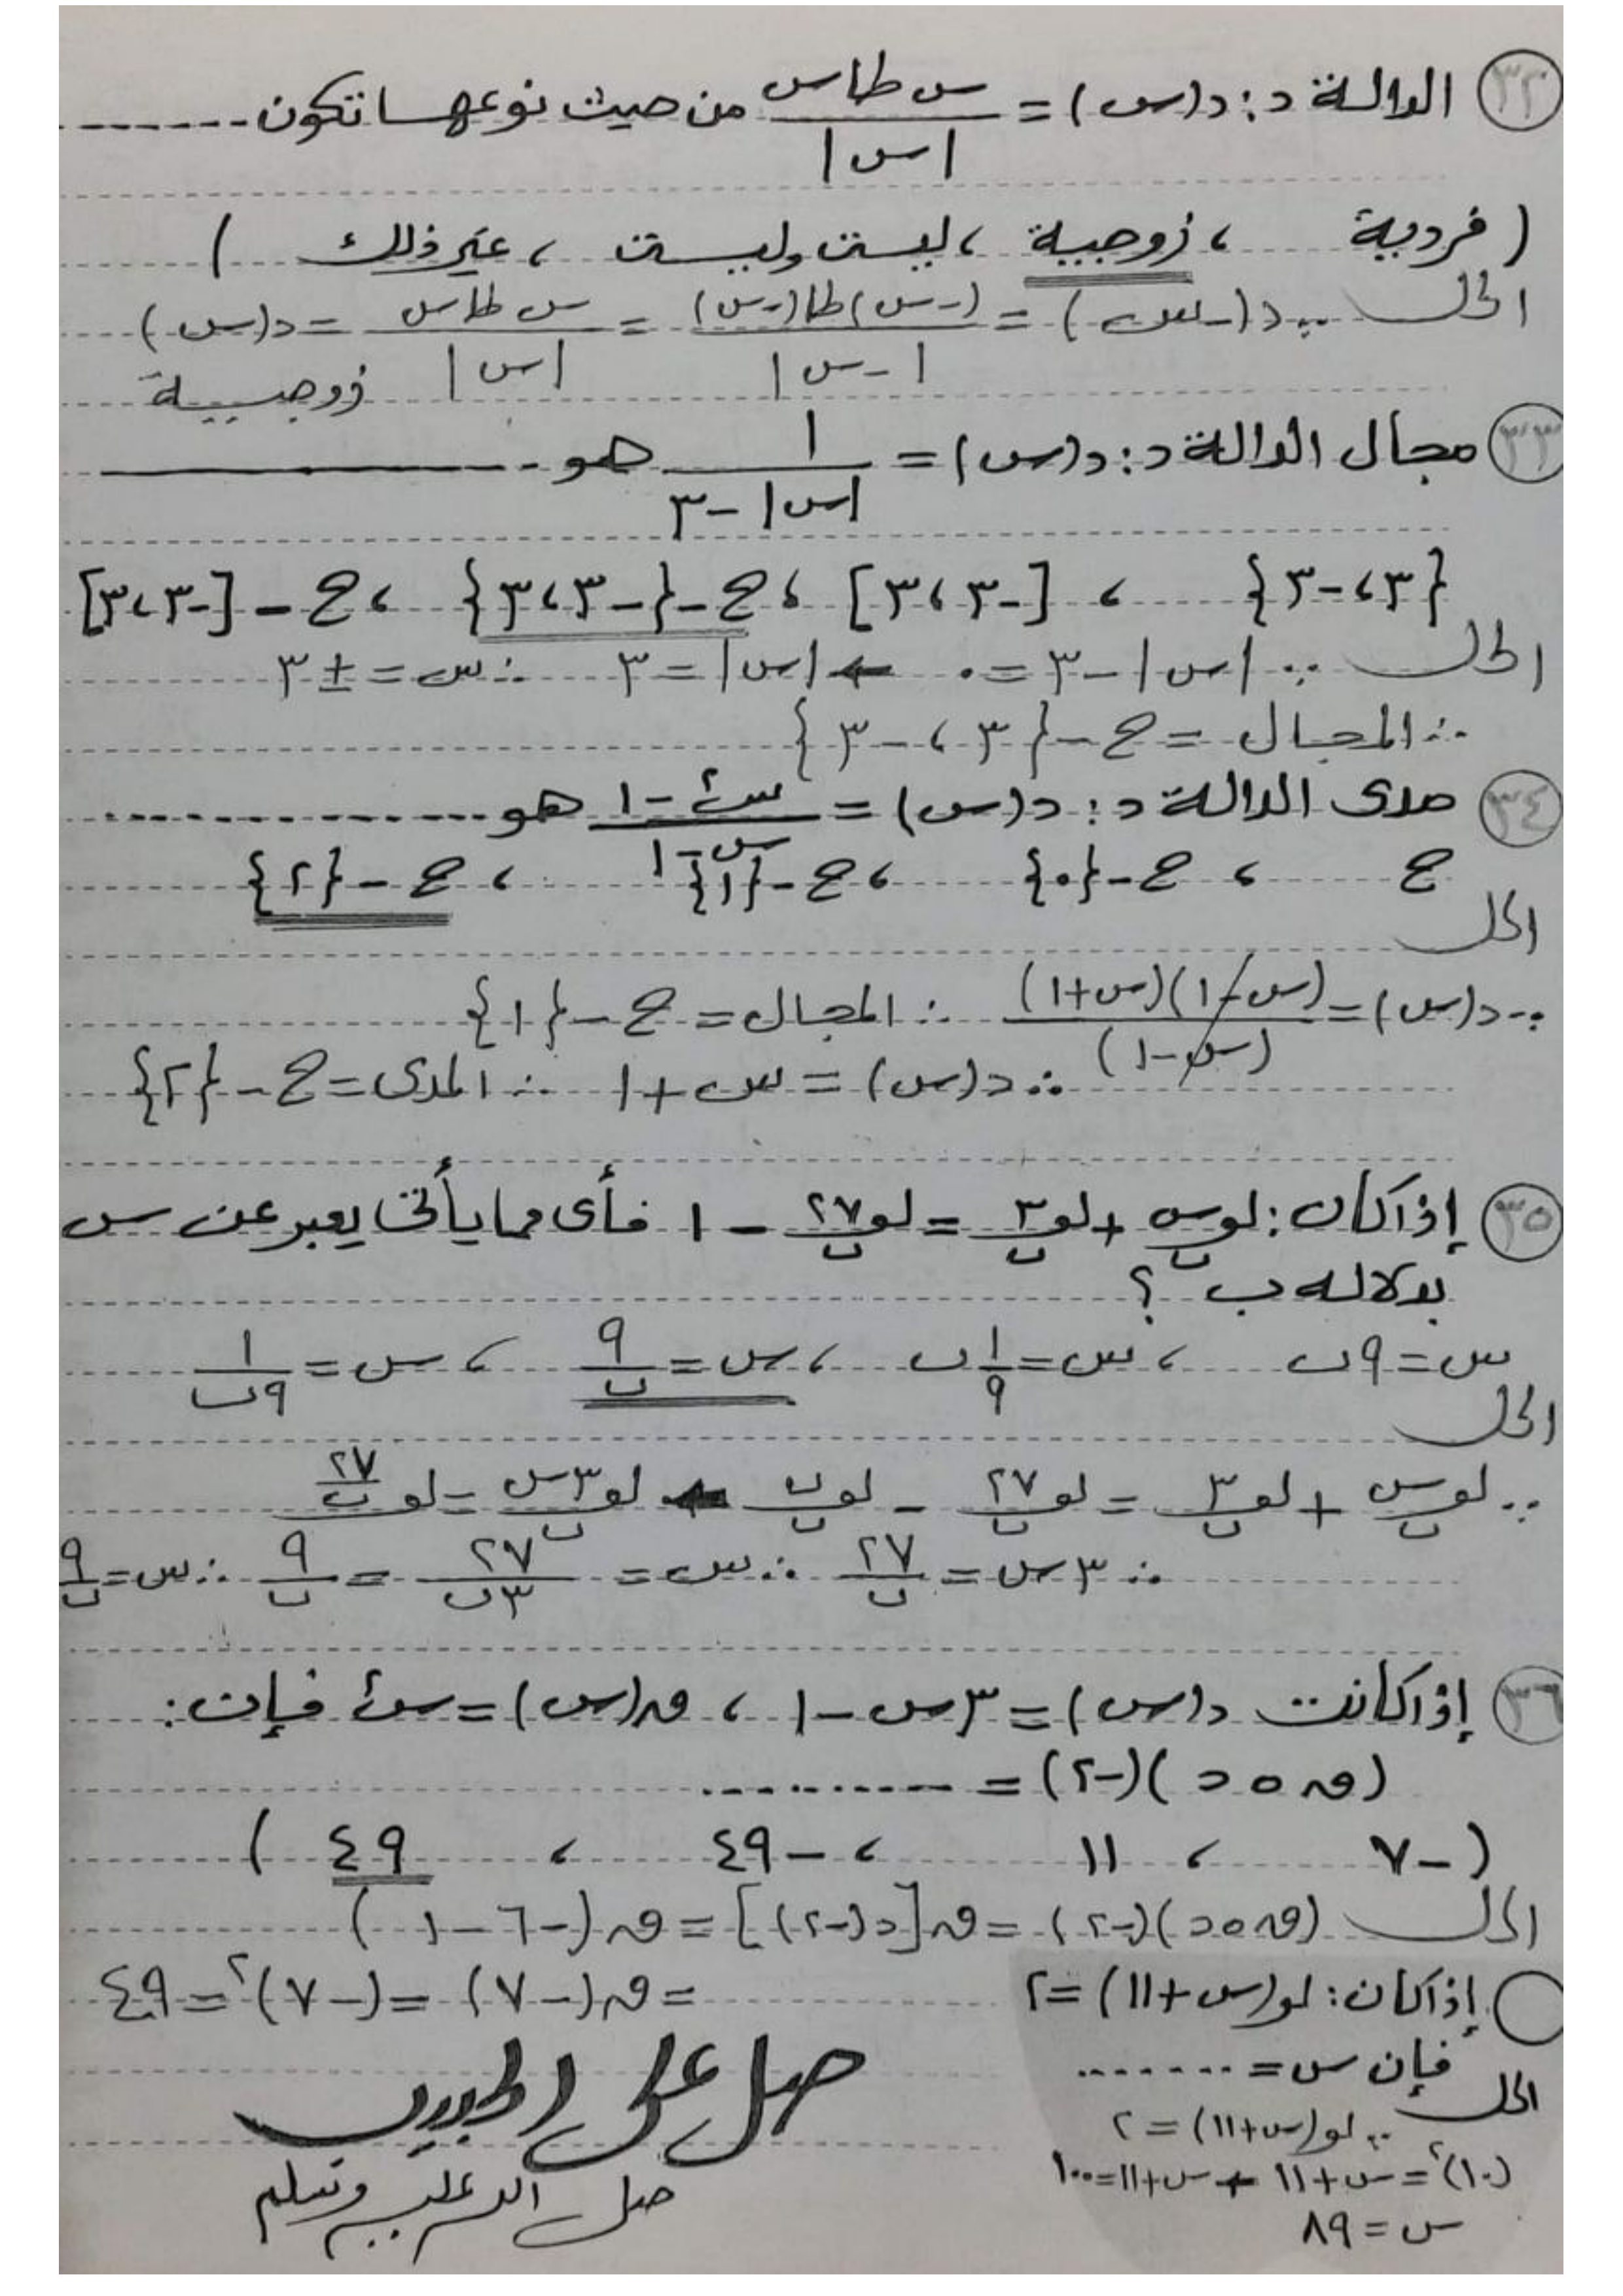 ٣٢ الدالة د : د(س) = س طاس / |س| من حيث نوعها تكون ........
( فردية ، زوجية ، ليست وليست ، غير ذلك )
الحل ∵ د(-س) = (-س) طا(-س) / |-س| = س طاس / |س| = د(س)
زوجية
٣٣ مجال الدالة د : د(س) = ١ / |س| - ٣ هو ........
{٣ ، -٣} ، [-٣ ، ٣] ، ح - {-٣ ، ٣} ، ح - [-٣ ، ٣]
الحل ∵ |س| - ٣ = ٠ ← |س| = ٣ ∴ س = ± ٣
∴ المجال = ح - {٣ ، -٣}
٣٤ مدى الدالة د : د(س) = س² - ١ / س - ١ هو ........
ح ، ح - {٠} ، ح - {١} ، ح - {٢}
الحل
∵ د(س) = (س - ١)(س + ١) / (س - ١) ∴ المجال = ح - {١}
∴ د(س) = س + ١ ∴ المدى = ح - {٢}
٣٥ إذا كان : لو_ب س + لو_ب ٣ = لو_ب ٢٧ - ١ فأى مما يأتى يعبر عن س
بدلاله ب ؟
س = ٩ب ، س = ١/٩ ب ، س = ٩/ب ، س = ١/٩ب
الحل
∵ لو_ب س + لو_ب ٣ = لو_ب ٢٧ - لو_ب ب ← لو_ب ٣س = لو_ب ٢٧/ب
∴ ٣س = ٢٧/ب ∴ س = ٢٧/٣ب = ٩/ب ∴ س = ٩/ب
٣٦ إذا كانت د(س) = ٣س - ١ ، ق(س) = س² فإن :
(ق ٥ د)(-٢) = ........
( -٧ ، ١١ ، -٤٩ ، ٤٩ )
الحل (ق٥د)(-٢) = ق[د(-٢)] = ق(-٦ - ١)
= ق(-٧) = (-٧)² = ٤٩
إذا كان : لو(س + ١١) = ٢
فإن س = ........
الحل
∵ لو(س + ١١) = ٢
(١٠)² = س + ١١ ← س + ١١ = ١٠٠
س = ٨٩
صل على الحبيب
صل الله عليه وسلم